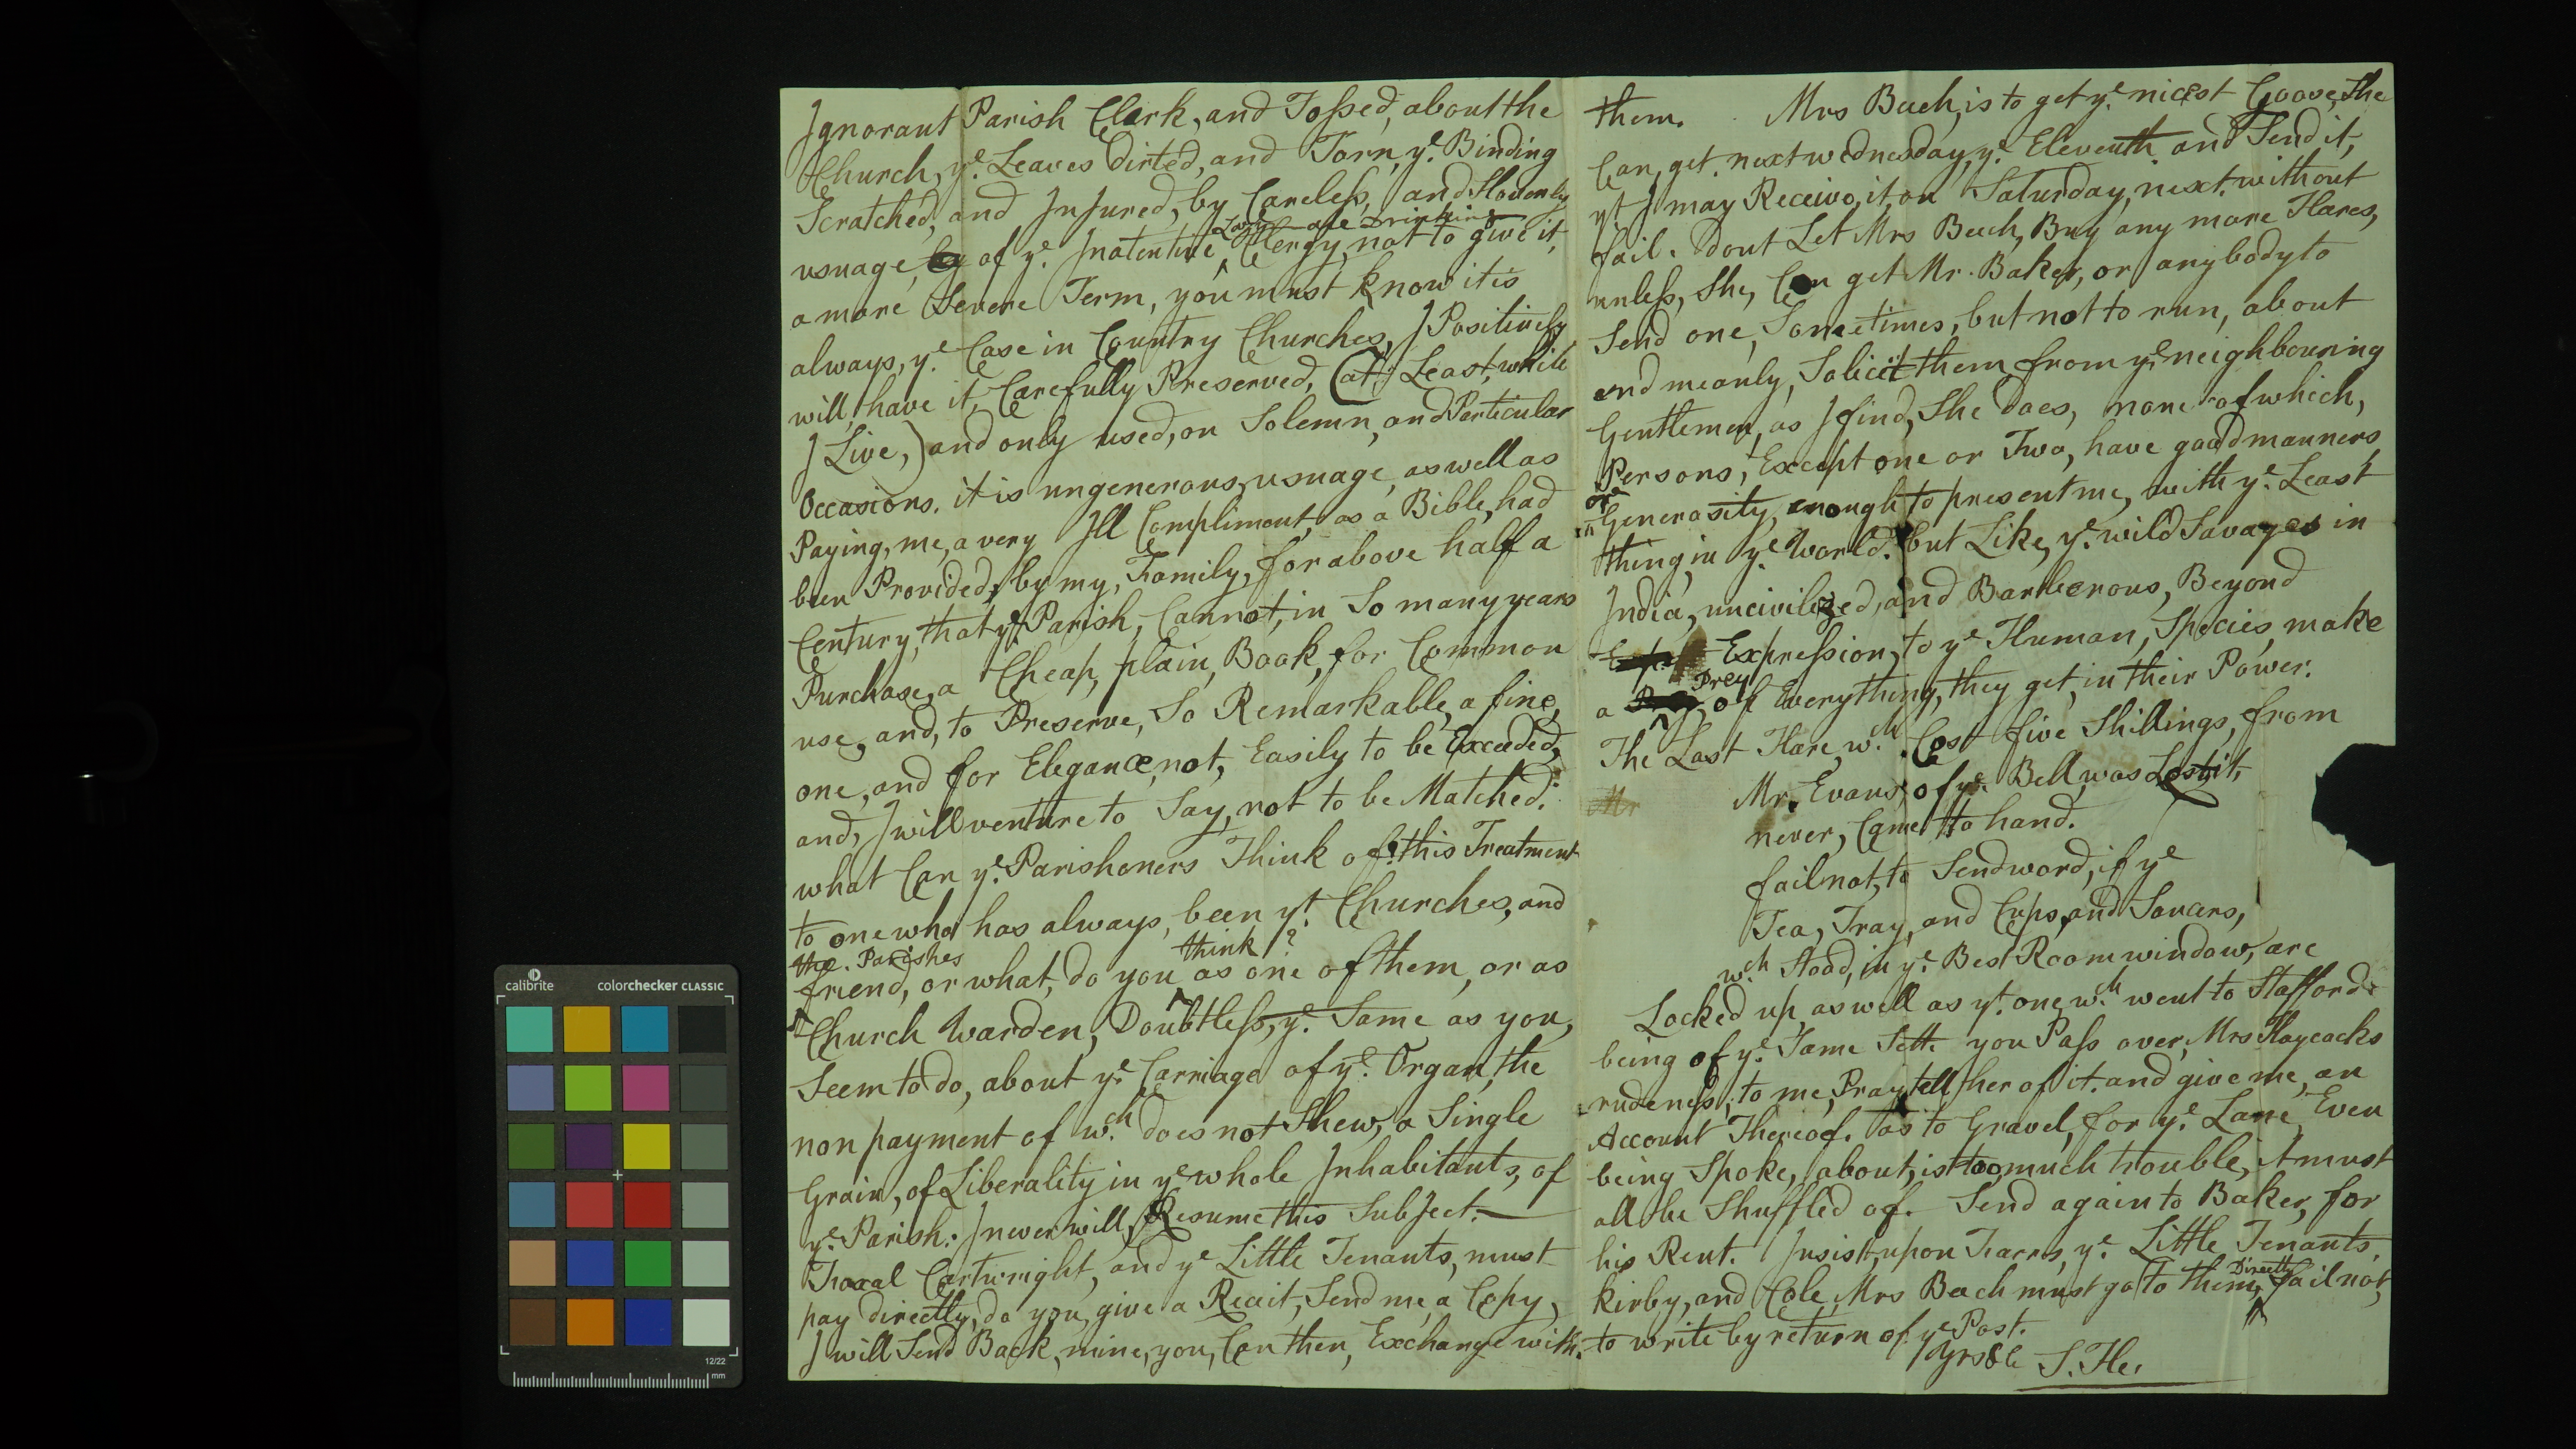 Ignorant Parish Clark, and Tossed, about the
Church, ye. Leaves Dirted, and Torn, ye. Binding
Scratched, and Injured, by Careless, and Slovenly
usuage, by of ye. Inatentive, Lazy are Drinking Clergy, not to give it,
a more Severe Term, you must know it is
always, ye. Case in Country Churches, I Positively
will, have it, Carefully Preserved, (at, Least, while
I Live,) and only used, on Solemn, and Particular
Occasions. it is ungenerous, usuage, as well as
Paying, me, a very Ill Compliment, as a Bible, had
been Provided, by my, Family, for above half a
Century, that ye Parish, Cannot, in So many years
Purchase, a Cheap, plain, Book, for Common
use, and, to Preserve, So Remarkable, a fine,
one, and for Elegance, not, Easily to be Exceeded,
and, I will venture to Say, not to be Matched.
what Can ye. Parishoners Think of this Treatment
to one who has always, been yt. Churches, and
the Parishes
friend, or what, do you think as one of them, or as ?
Church Warden, Doubtless, ye. Same as you,
Seem to do, about ye. Carriage of ye. Organ, the
non payment of wch. does not Shew, a Single
Grain, of Liberality in ye whole Inhabitants, of
ye. Parish. I never will, Resume this Subject.
Troxal Cartwright, and ye Little Tenants, must
pay directly, do you, give a Recait, Send me, a Copy,
I will Send Back, mine, you, Can then, Exchange with.
them. Mrs Bach, is to get ye. nicest Goose, She
Can, get. next wednesday, ye. Eleventh and Send it,
yt I may Receive, it, on Saturday, next. without
fail. dont Let Mrs Bach, Buy any more Hares,
unless, She, Can get Mr. Baker, or anybody to
Send one, Sometimes, but not to run, about
and meanly, Solicit them, from ye. neighbouring
Gentlemen, as I find, She does, none of which,
Persons, Except one or Two, have good manners
or Generosity, enough to present me, with ye. Least
thing, in ye. World. but Like, ye. wild Savages in
India, uncivilized, and Barberous, Beyond
Expression, to ye Human, Species, make
a Prey, of Everything, they get, in their Power.
The Last Hare, wch. Cost five Shillings, from
Mr Mr. Evans, of ye. Bell, was Lost, it,
never, Came to hand.
fail not, to Send word, if ye
Tea, Tray, and Cups, and Saucers,
wch. Stood, in ye. Best Room window, are
Locked up, as well as yt. one, wch. went to Stafford.
being of ye. Same Sett. you Pass over, Mrs Haycocks
rudeness, to me, Pray tell her of it. and give me, an
Account Thereof. as to Gravel, for ye. Lane, Even
being Spoke, about, is too much trouble, it must
all be Shuffled of. Send again to Baker, for
his Rent. Insist, upon ye. Little Tenants,
Kirby, and Cole, Mrs Bach must go to them, Directly fail not,
to write by return of ye Post.
Yrs &c S. He.
calibrite colorchecker CLASSIC
12/22
mm